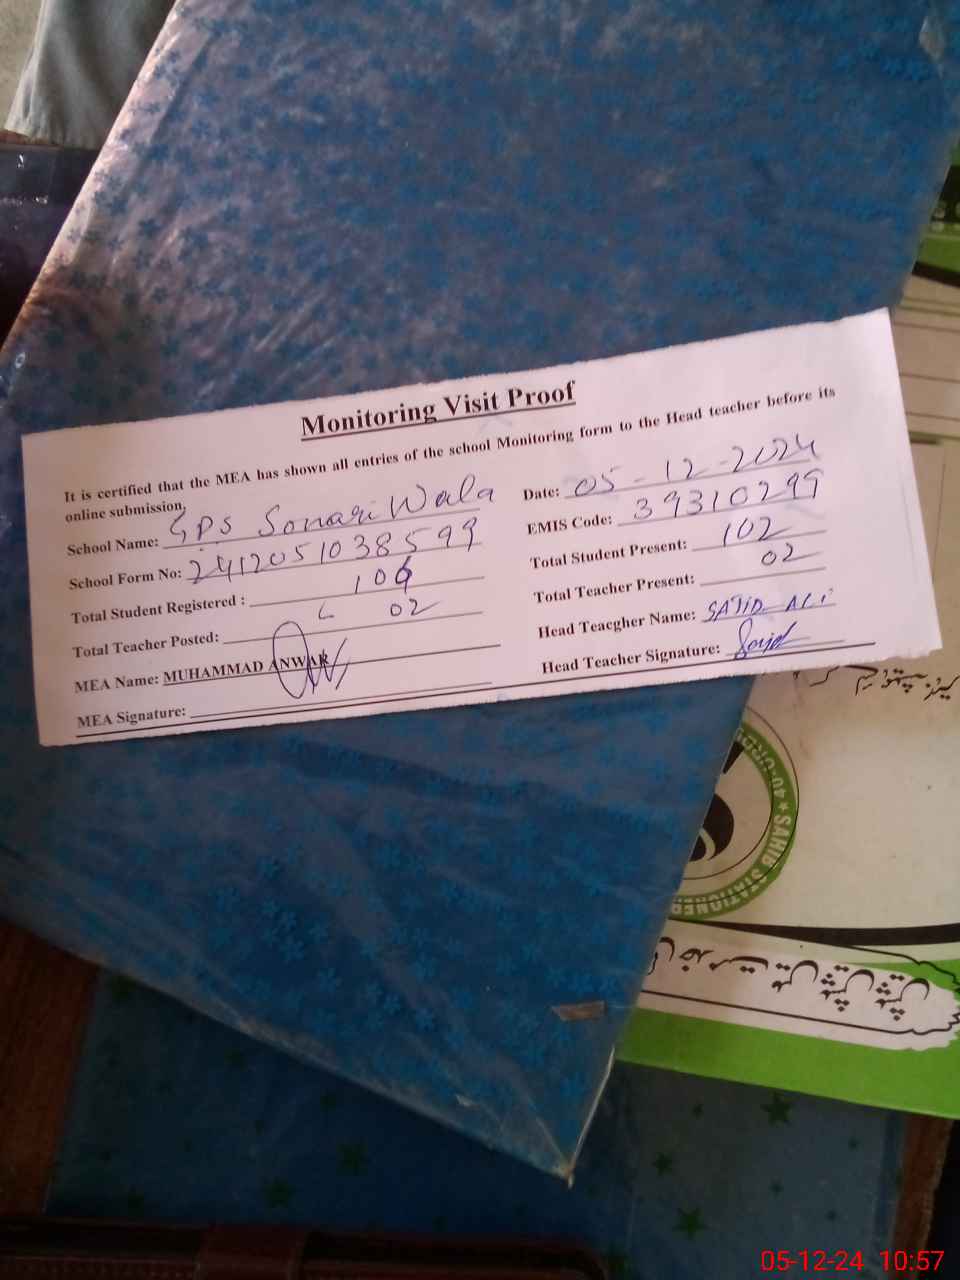 Monitoring Visit Proof
It is certified that the MEA has shown all entries of the school Monitoring form to the Head teacher before its
online submission.
School Name: GPS Sonari Wala
Date: 05-12-2024
School Form No: 2412051038599
EMIS Code: 39310299
Total Student Registered : 106
Total Student Present: 102
Total Teacher Posted: 02
Total Teacher Present: 02
MEA Name: MUHAMMAD ANWAR
Head Teacgher Name: SAJID ALI
MEA Signature:
Head Teacher Signature: Sajid
SAHIB STATIONER
05-12-24 10:57